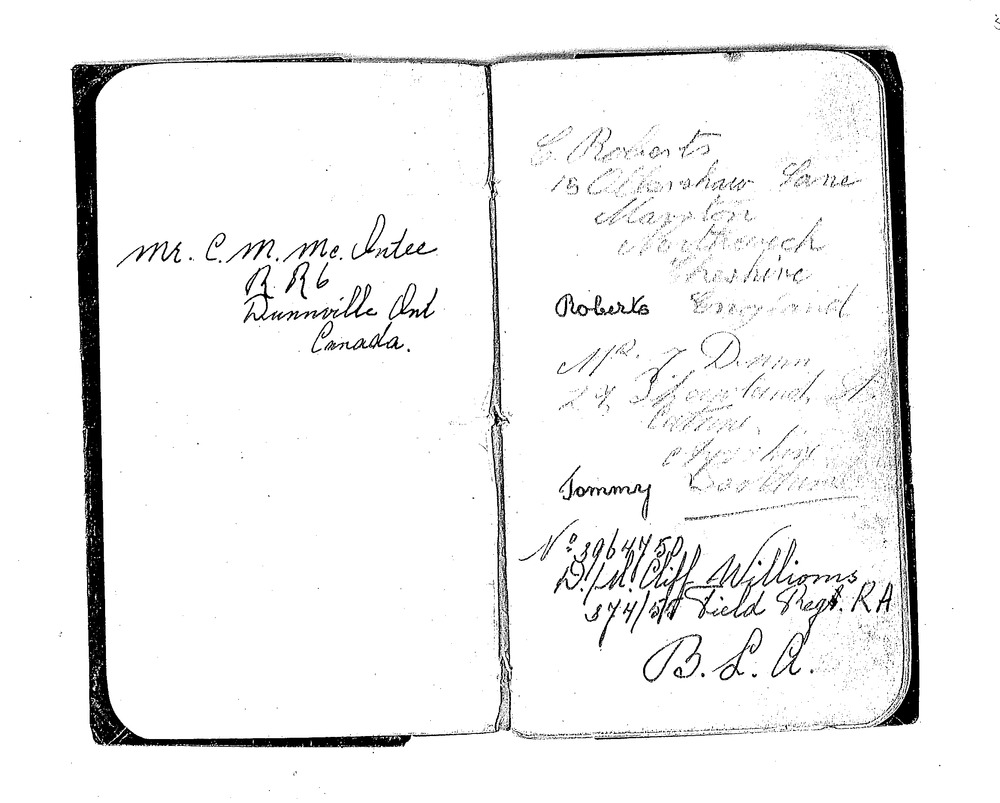 Mr. C. M. Mc. Intee
R. R 6
Dunnville Ont
Canada.
C. Roberts
18 Ollershaw Lane
Marston
Northwich
Cheshire
Roberts England
Mr. J. Dunn
St.
Catrine
Ayrshire
Tommy Scotland
No 3964750
D/M. Cliff Williams
Field Regt. R A
B. L. A.